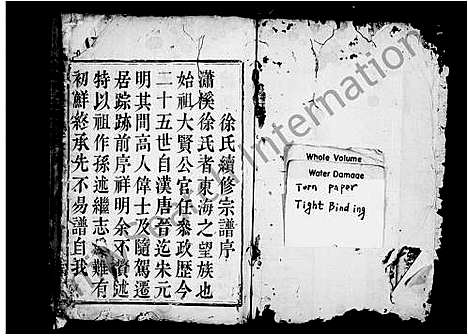 徐氏續修宗譜序
瀟溪徐氏者東海之望族也
始祖大賢公官任叅政歷今
二十五世自漢唐晉迄宋元
明其間高人偉士及隨駕遷
居踪跡前序祥明余不贅述
特以祖作孫述繼志難有
初鮮終承先不易譜自我
Whole Volume
Water Damage
Torn paper
Tight Binding
International